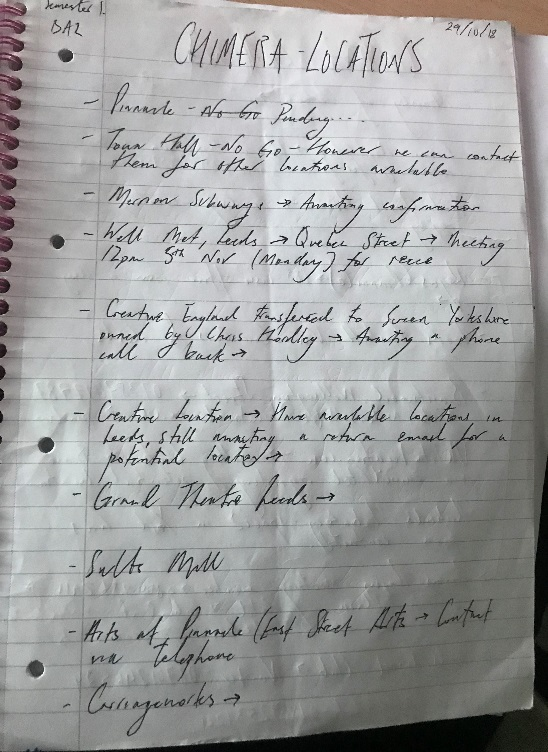 Semester 1
DA2
29/10/18
CHIMERA - LOCATIONS
- Pinnacle - No Go Pending...
- Town Hall - No Go - However we can contact
them for other locations available
- Merrion Subways → Awaiting confirmation
- Well Met, Leeds → Quebec Street → Meeting
12pm 5th Nov (Monday) for recce
- Creative England transferred to Screen Yorkshire
owned by Chris Hordley → Awaiting a phone
call back →
- Creative Location → Have available locations in
Leeds, still awaiting a return email for a
potential location →
- Grand Theatre Leeds →
- Salts Mill
- Arts at Pinnacle (East Street Arts → Contact
via telephone
- Carriageworks →